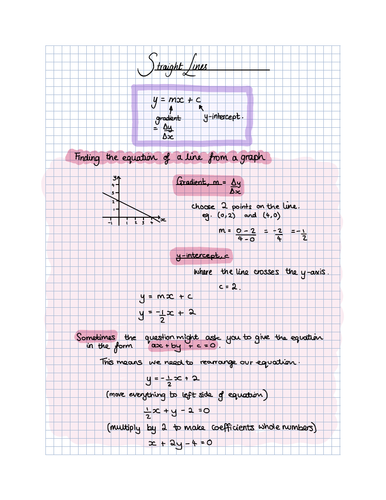 Straight Lines
y = mx + c
gradient y-intercept.
= Δy/Δx
Finding the equation of a line from a graph
Gradient, m = Δy/Δx
Choose 2 points on the line.
eg. (0,2) and (4,0)
m = 0-2/4-0 = -2/4 = -1/2
y-intercept, c
Where the line crosses the y-axis.
c = 2.
y = mx + c
y = -1/2x + 2
Sometimes the question might ask you to give the equation
in the form ax + by + c = 0.
This means we need to rearrange our equation.
y = -1/2x + 2
(move everything to left side of equation)
1/2x + y - 2 = 0
(multiply by 2 to make coefficients whole numbers)
x + 2y - 4 = 0